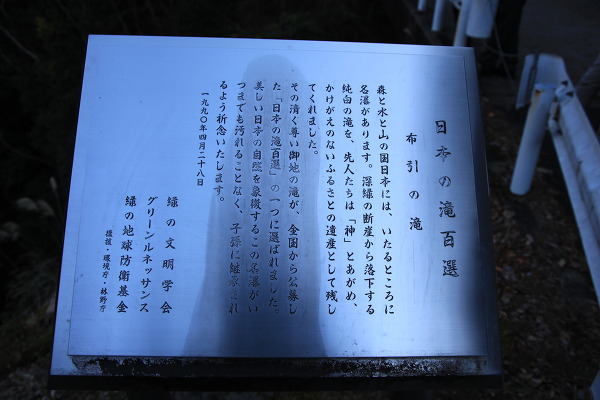 日本の滝百選
布引の滝
森と水と山の国日本には、いたるところに
名瀑があります。深緑の断崖から落下する
純白の滝を、先人たちは「神」とあがめ、
かけがえのないふるさとの遺産として残し
てくれました。
その清く尊い御地の滝が、全国から公募し
た「日本の滝百選」の一つに選ばれました。
美しい日本の自然を象徴するこの名瀑がい
つまでも汚れることなく、子孫に継承され
るよう祈念いたします。
一九九〇年四月二十八日
緑の文明学会
グリーンルネッサンス
緑の地球防衛基金
援援・環境庁・林野庁